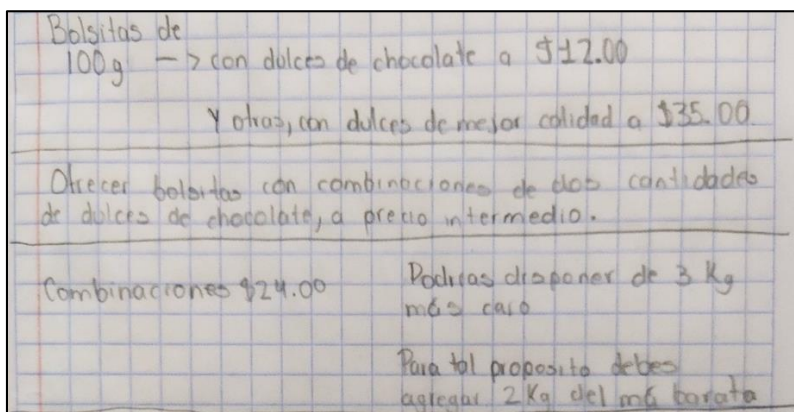 Bolsitas de
100g -> con dulces de chocolate a $12.00
Y otras, con dulces de mejor calidad a $35.00.
Ofrecer bolsitas con combinaciones de dos cantidades
de dulces de chocolate, a precio intermedio.
Combinaciones $24.00
Podrias disponer de 3 Kg
más caro
Para tal proposito debes
agregar 2Kg del má barata